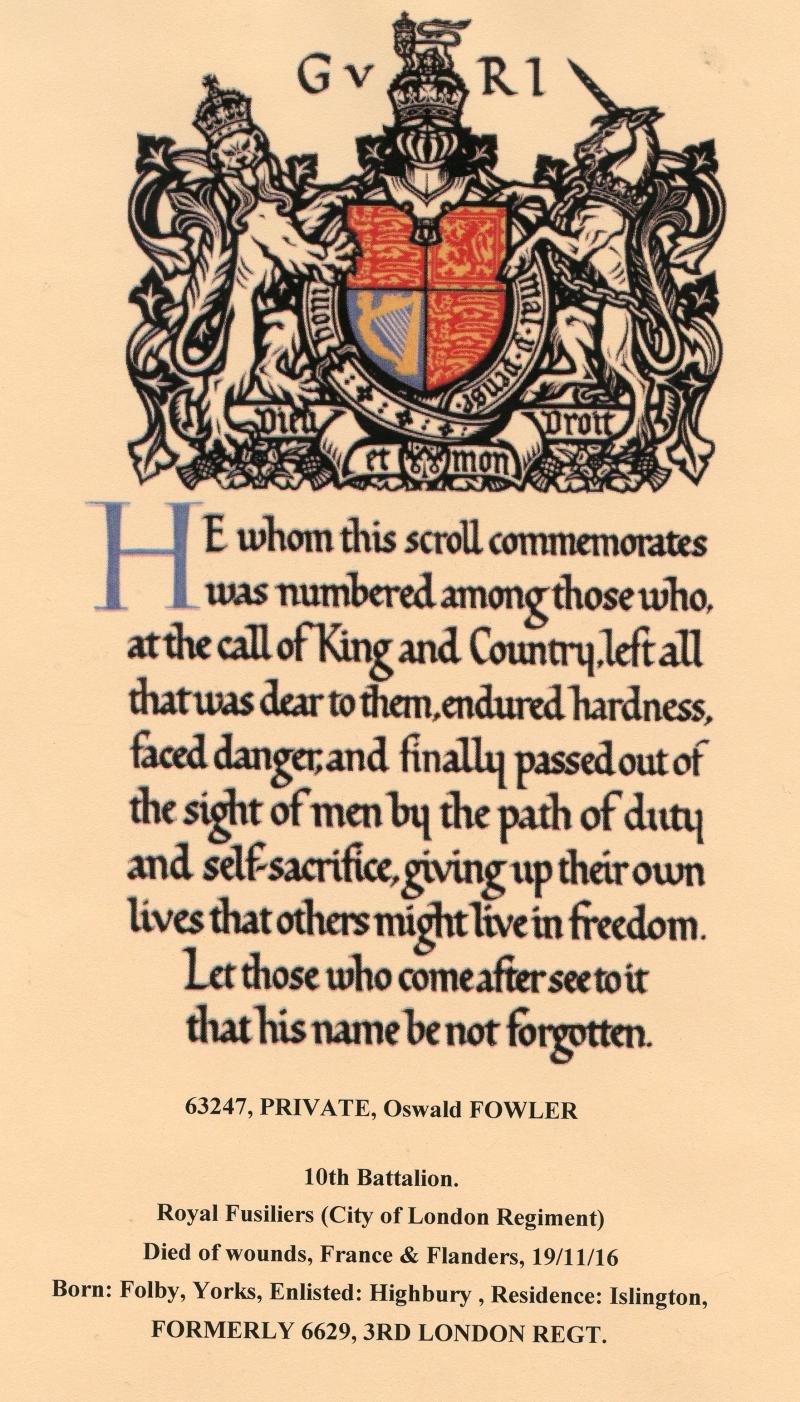 G V R I
honi mal · y · pense ·
Dieu Droit
et mon
HE whom this scroll commemorates
was numbered among those who,
at the call of King and Country, left all
that was dear to them, endured hardness,
faced danger, and finally passed out of
the sight of men by the path of duty
and self-sacrifice, giving up their own
lives that others might live in freedom.
Let those who come after see to it
that his name be not forgotten.
63247, PRIVATE, Oswald FOWLER
10th Battalion.
Royal Fusiliers (City of London Regiment)
Died of wounds, France & Flanders, 19/11/16
Born: Folby, Yorks, Enlisted: Highbury , Residence: Islington,
FORMERLY 6629, 3RD LONDON REGT.